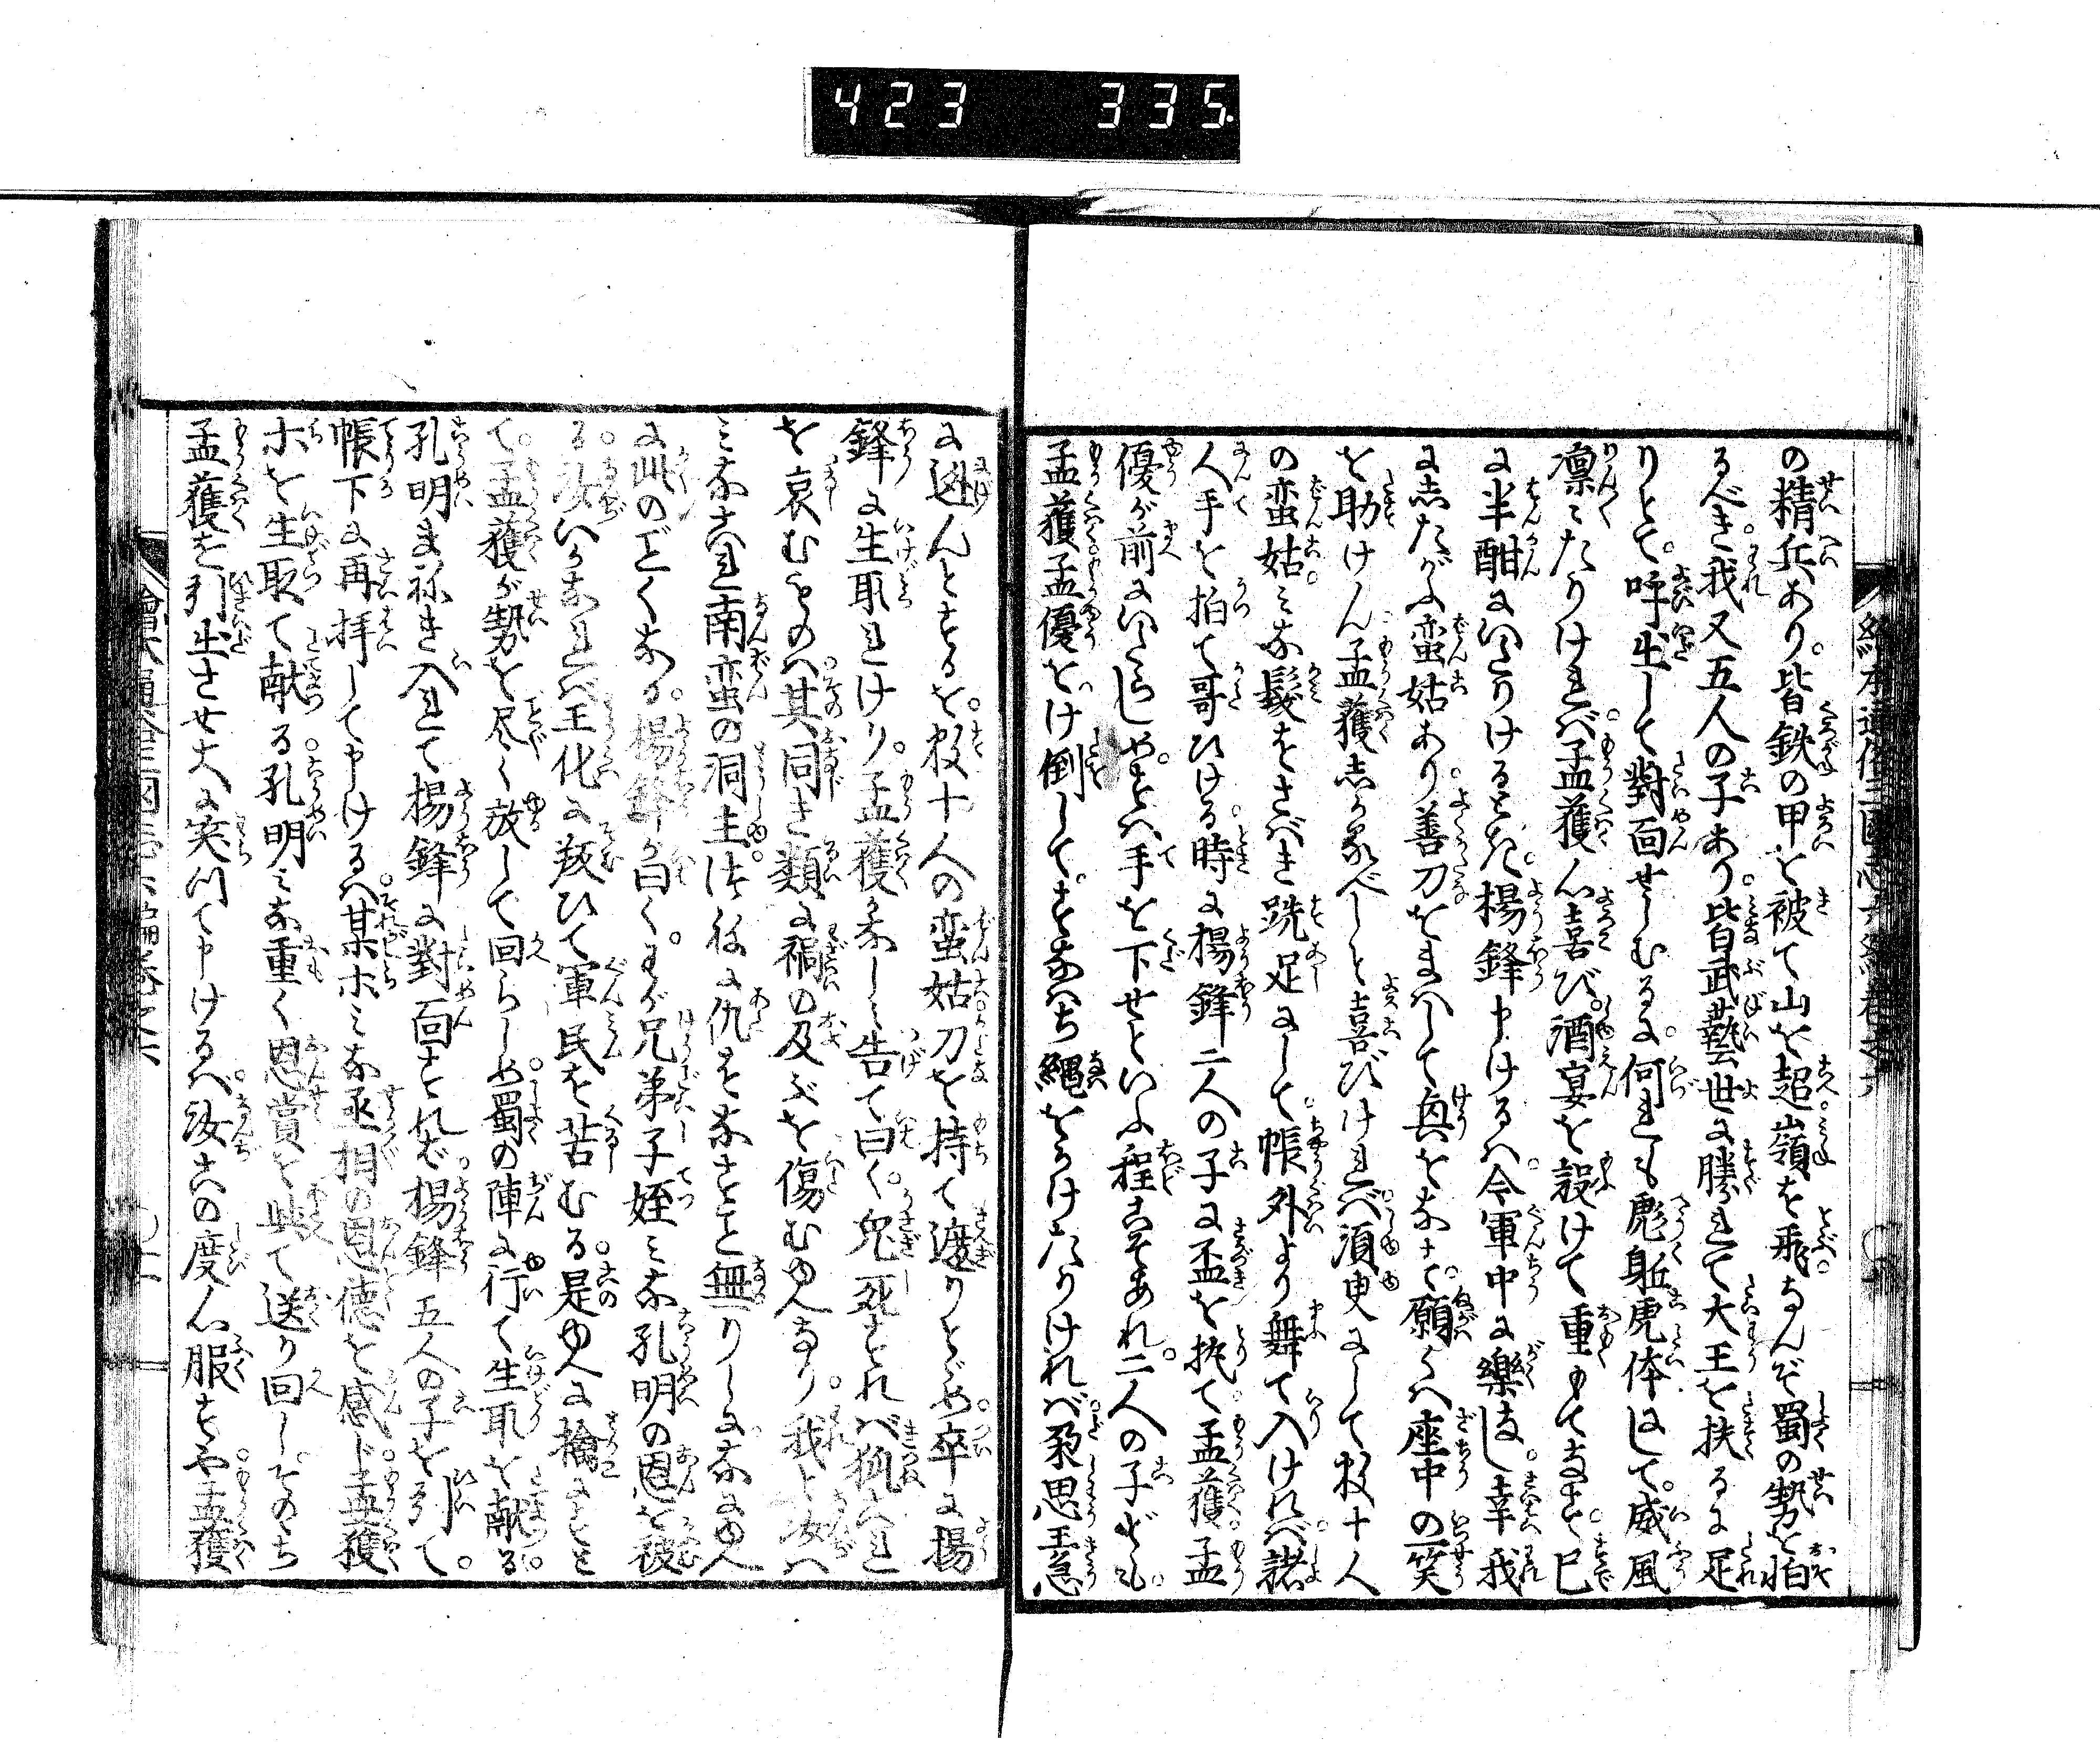 423 335
の精兵あり。皆鉄の甲を被て山を超嶺を飛。なんぞ蜀の勢を怕
るべき。我又五人の子あり。皆武藝世に勝れて大王を扶るに足
りとて。呼出して對面せしむるに。何れも彪躯虎体にして。威風
凛々たりければ。孟獲心喜び。酒宴を設けて重くもてなす。已
に半酣にいたりけるとき。楊鋒申けるハ。今軍中に樂なし。幸我
にしたがふ蛮姑あり。善刀をまハして興をなす。願くハ座中の一笑
を助けん。孟獲しかるべしと喜びければ。須臾にして数十人
の蛮姑。みな髪をさばき跣足にして。帳外より舞て入けれバ。諸
人手を拍て哥ひける。時に楊鋒二人の子に盃を執て。孟獲。孟
優が前にいたらしめ。すハ手を下せといふ程こそあれ。二人の子ども。
孟獲。孟優をけ倒して。すなハち縄をかけたりければ。朶思王急
に迯んとするを。数十人の蛮姑刀を持て遮りとゞめ。卒に楊
鋒に生取れけり。孟獲かなしミ告て曰く。兔死すれバ狐これ
を哀むものハ。其同き類に禍の及ぶを傷むゆへなり。我と汝ハ
みなこれ南蛮の洞主。往日に仇をなすこと無りしに。なにゆへ
に此のごくなる。楊鋒が曰く。わが兄弟子姪ミな孔明の恩を被
る。汝いかなれバ王化に叛ひて軍民を苦むる。是ゆへに擒にすと
て。孟獲が勢を尽く放して回らしめ。蜀の陣に行て生取を献る。
孔明まねき入れて楊鋒に對面すれバ。楊鋒五人の子を引て。
帳下に再拝して申けるハ。某ホみな丞相の恩徳を感ド。孟獲
ホを生取て献る。孔明みな重く恩賞を與て送り回し。そのち
孟獲を引出させ大に笑川て申けるハ。汝この度心服すや。孟獲